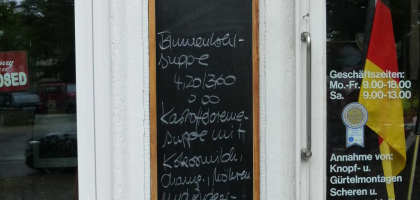 LOSED
Blumenkohl-
suppe
4,20/3,60
Kartoffelcreme-
suppe mit
Kokosmilch,
Geschäftszeiten:
Mo.-Fr. 9.00-18.00
Sa. 9.00-13.00
Annahme von:
Knopf- u.
Gürtelmontagen
Scheren u.